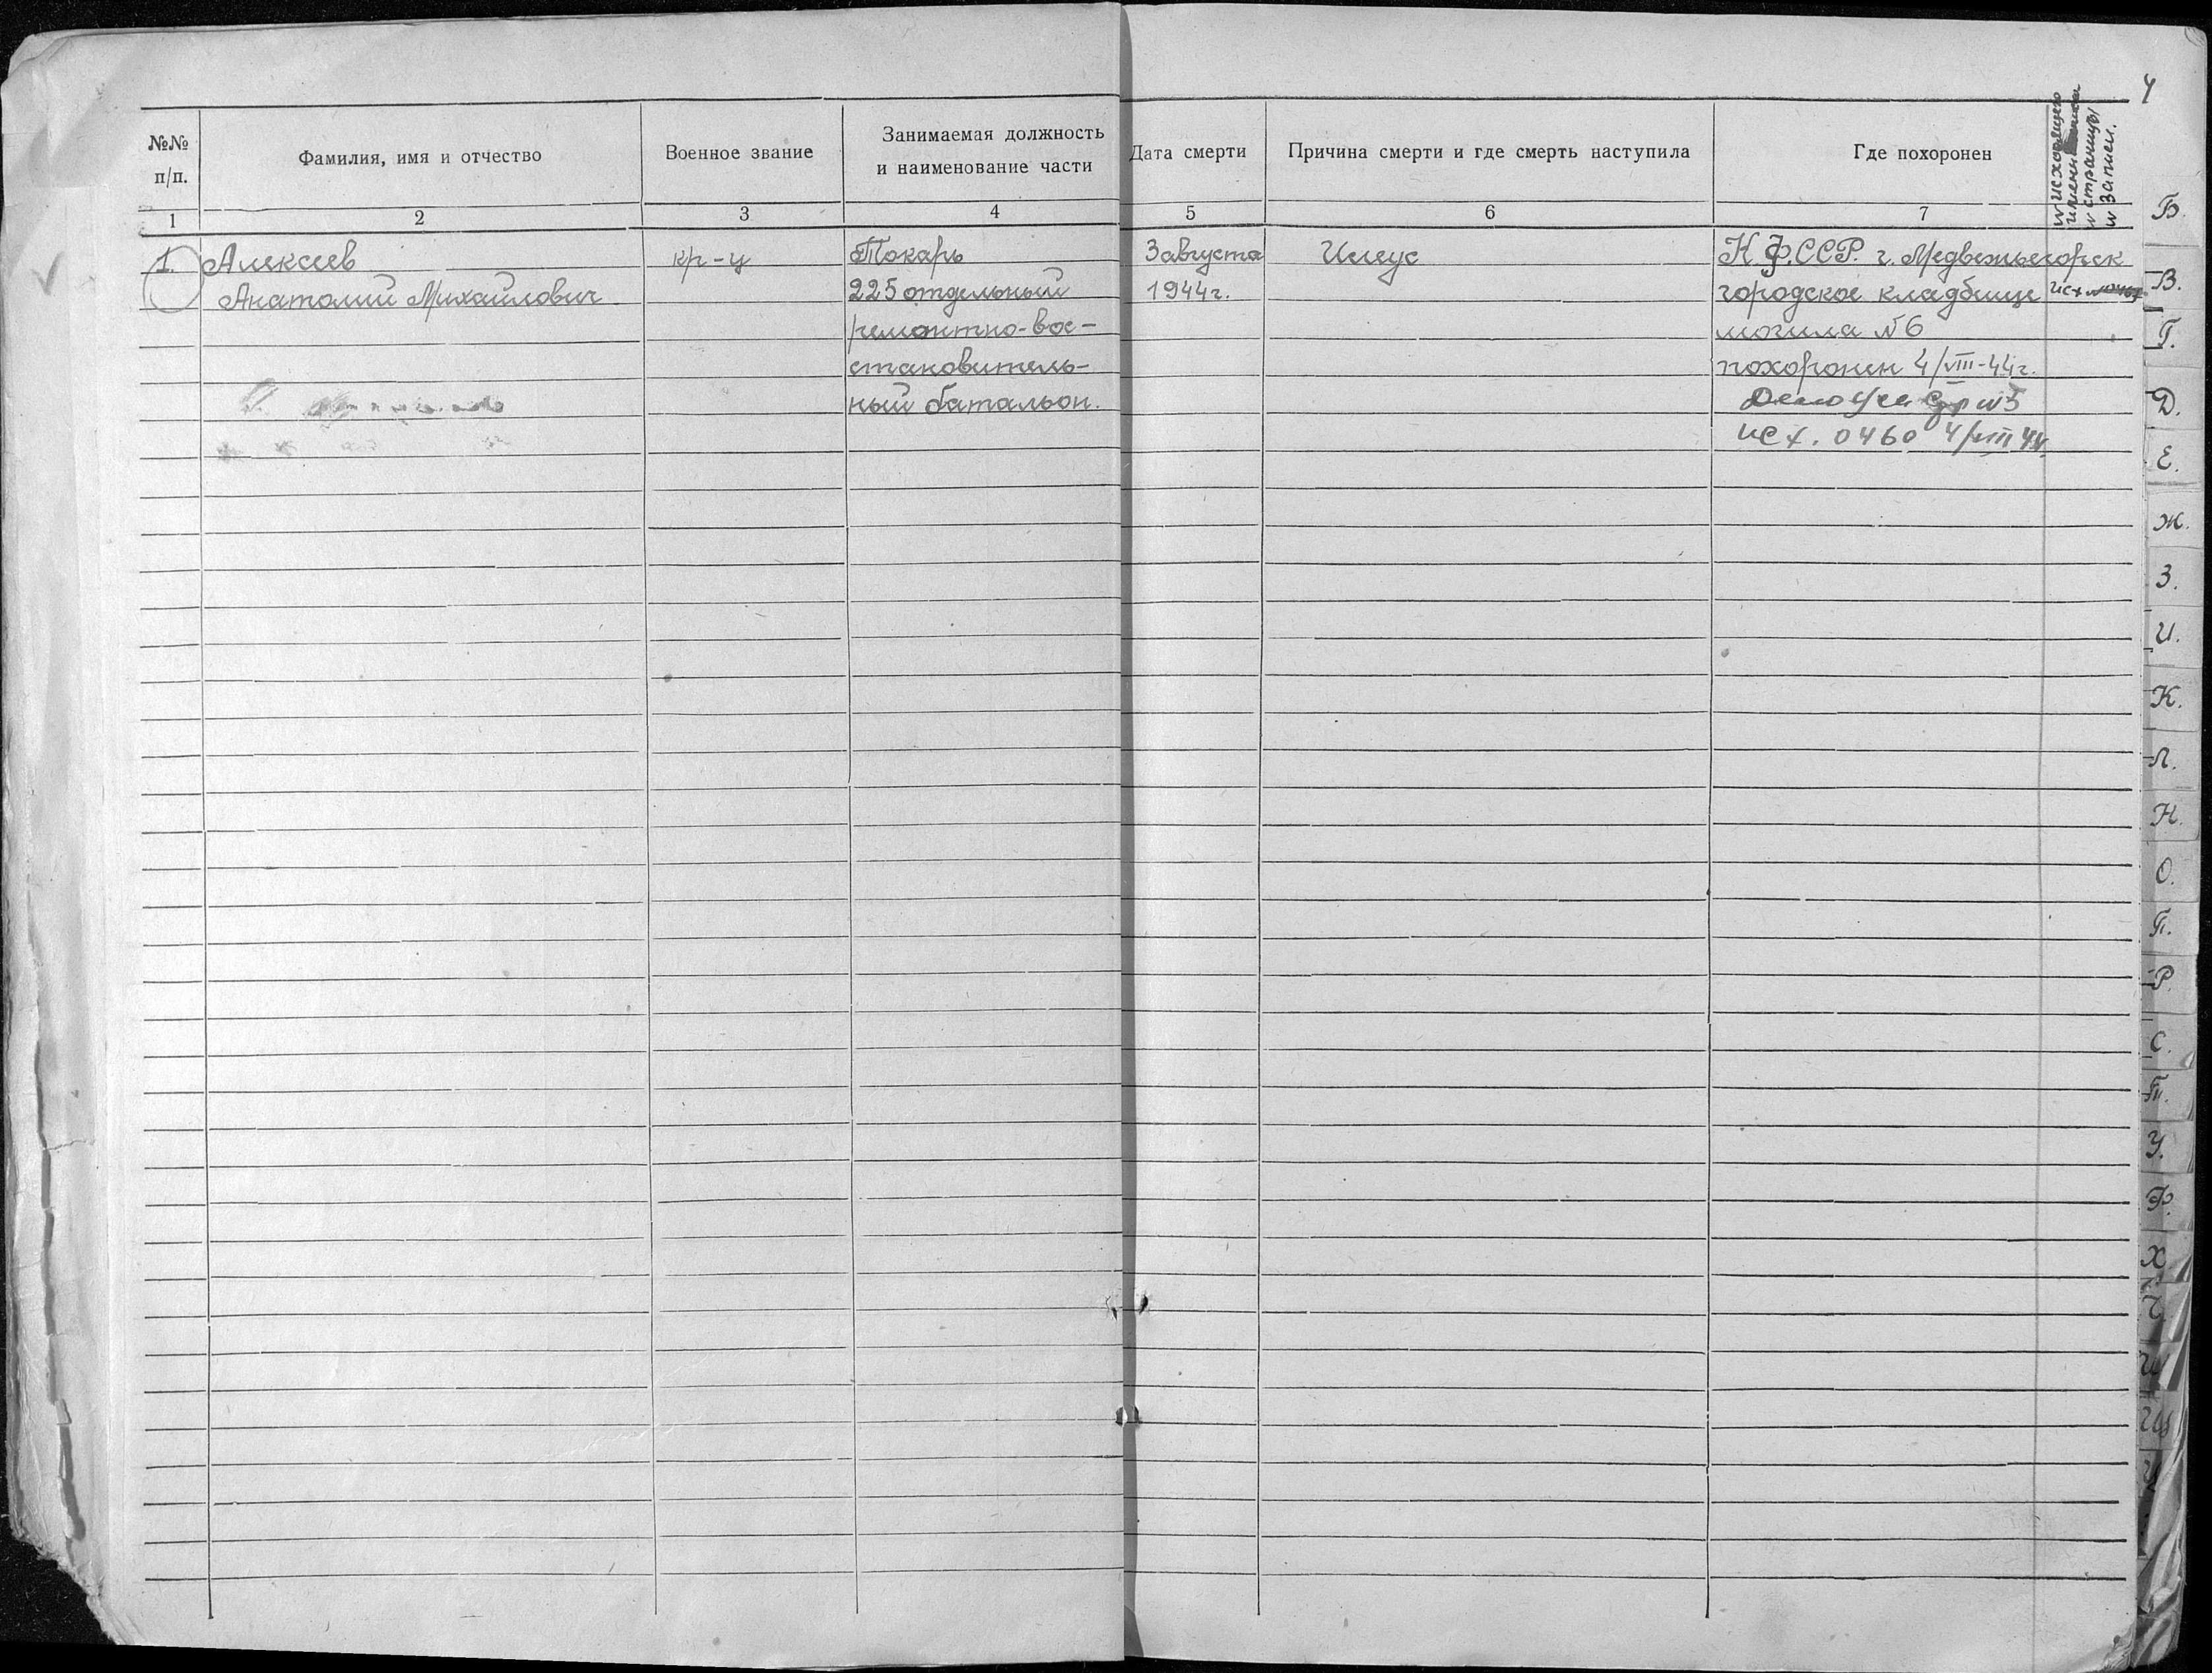 4
№№ п/п.
Фамилия, имя и отчество
Военное звание
Занимаемая должность и наименование части
Дата смерти
Причина смерти и где смерть наступила
Где похоронен
№ исходящего
№ страницы
№ записи.
1 2 3 4 5 6 7
1. Алексеев кр-ц Токарь 3 августа Илеус К.Ф.ССР. г. Медвежьегорск
Анатолий Михайлович 225 отдельный 1944г. городское кладбище исх
ремонтно-вос- могила №6
становитель- похоронен 4/VIII-44г.
ный батальон. Дело
исх. 0460 4/VIII 44
Б.
В.
Г.
Д.
Е.
Ж.
З.
И.
К.
Л.
Н.
О.
П.
Р.
С.
Т.
У.
Ф.
Х.